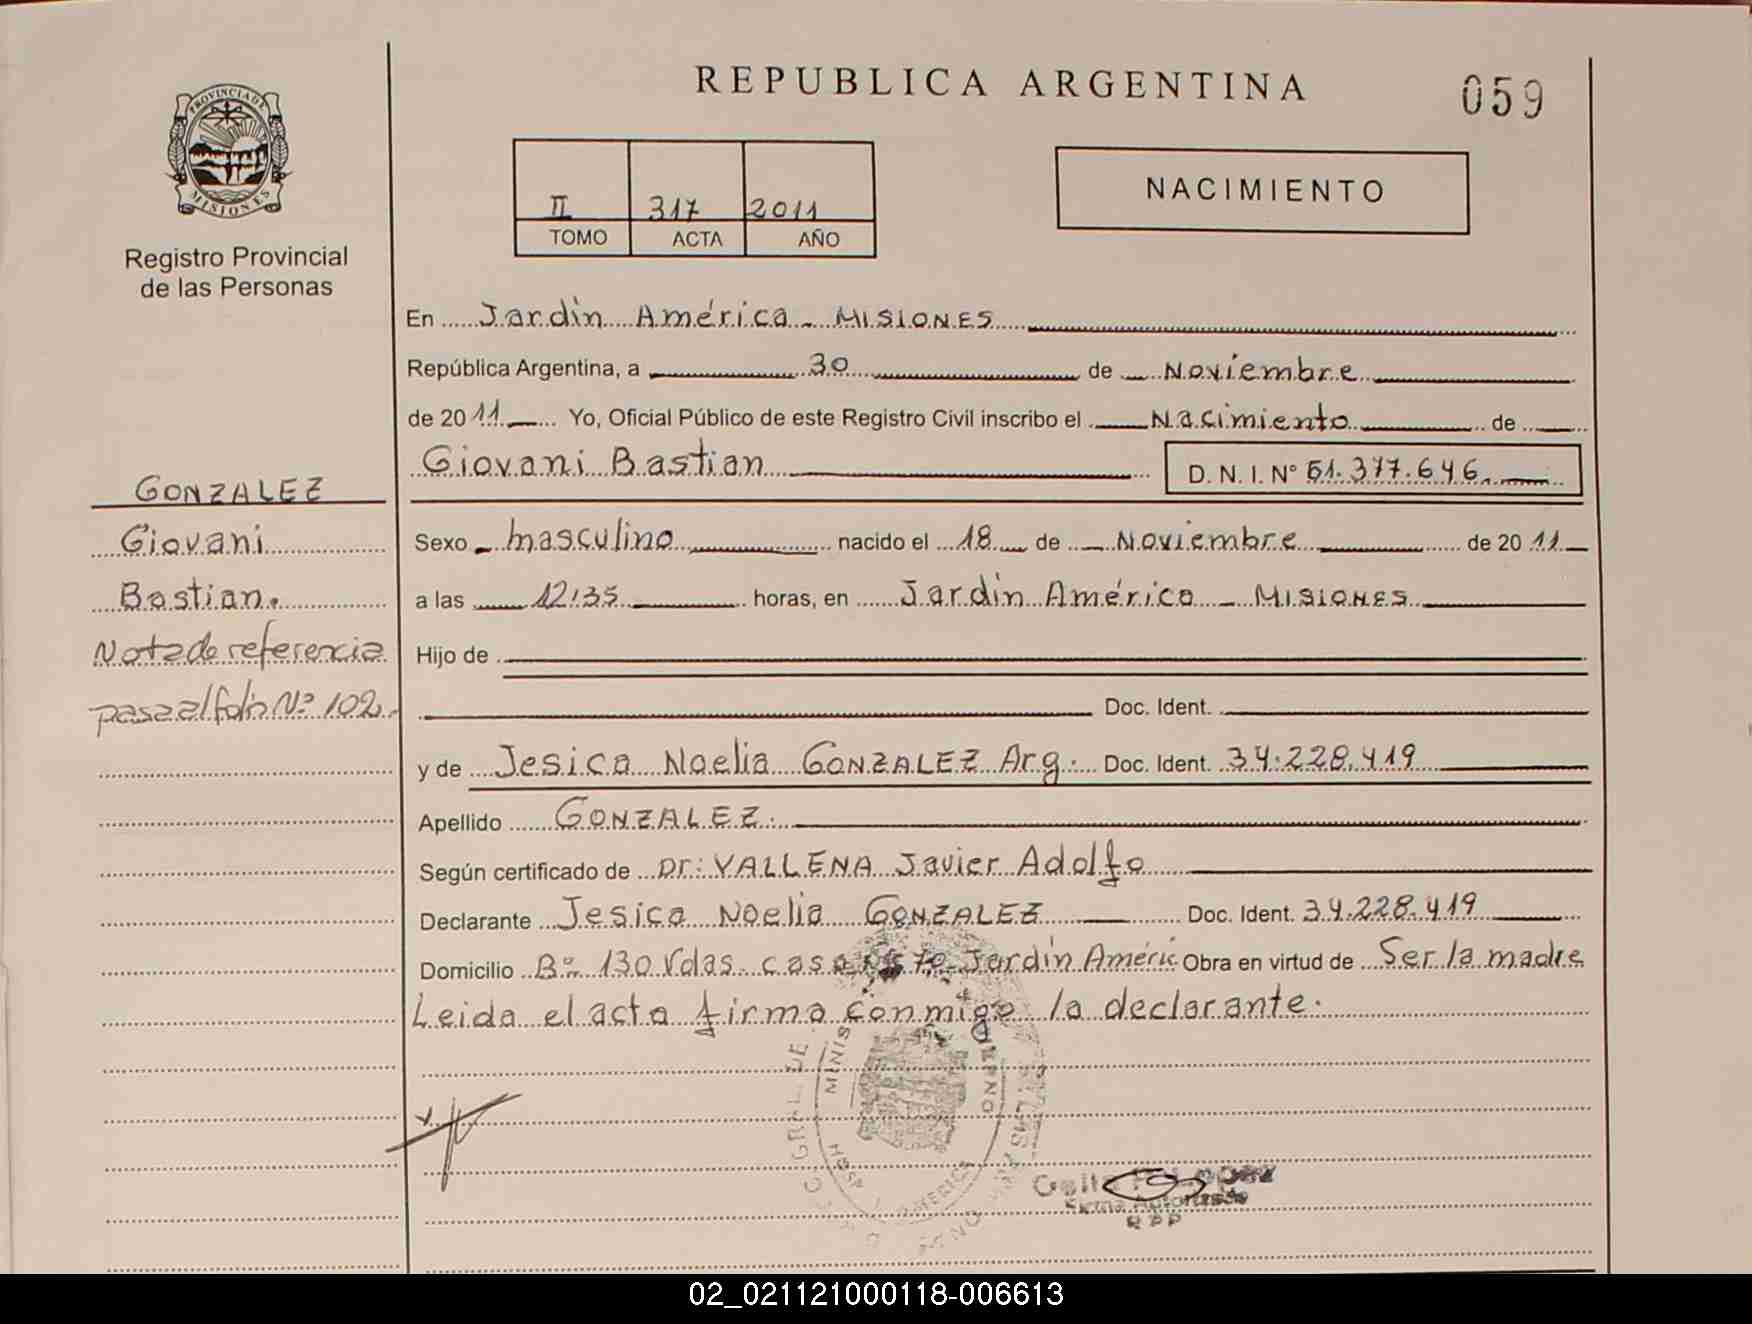 REPUBLICA ARGENTINA
059
PROVINCIA DE
MISIONES
Registro Provincial
de las Personas
II 317 2011
TOMO ACTA AÑO
NACIMIENTO
En Jardín América - MISIONES
República Argentina, a 30 de Noviembre
de 2011 Yo, Oficial Público de este Registro Civil inscribo el Nacimiento de
Giovani Bastian D. N. I. Nº 51.377.646
GONZALEZ
Giovani
Bastian.
Nota de referencia
pasa al folio Nº 102.
Sexo masculino nacido el 18 de Noviembre de 2011
a las 12:35 horas, en Jardín América - MISIONES
Hijo de
Doc. Ident.
y de Jesica Noelia GONZALEZ Arg. Doc. Ident. 34.228.419
Apellido GONZALEZ.
Según certificado de Dr: VALLENA Javier Adolfo
Declarante Jesica Noelia GONZALEZ Doc. Ident. 34.228.419
Domicilio Bº 130 Vdas. casa Jardín Améric Obra en virtud de Ser la madre
Leida el acta firma conmigo la declarante.
Lopez
Firma Autorizada
RPP
02_021121000118-006613